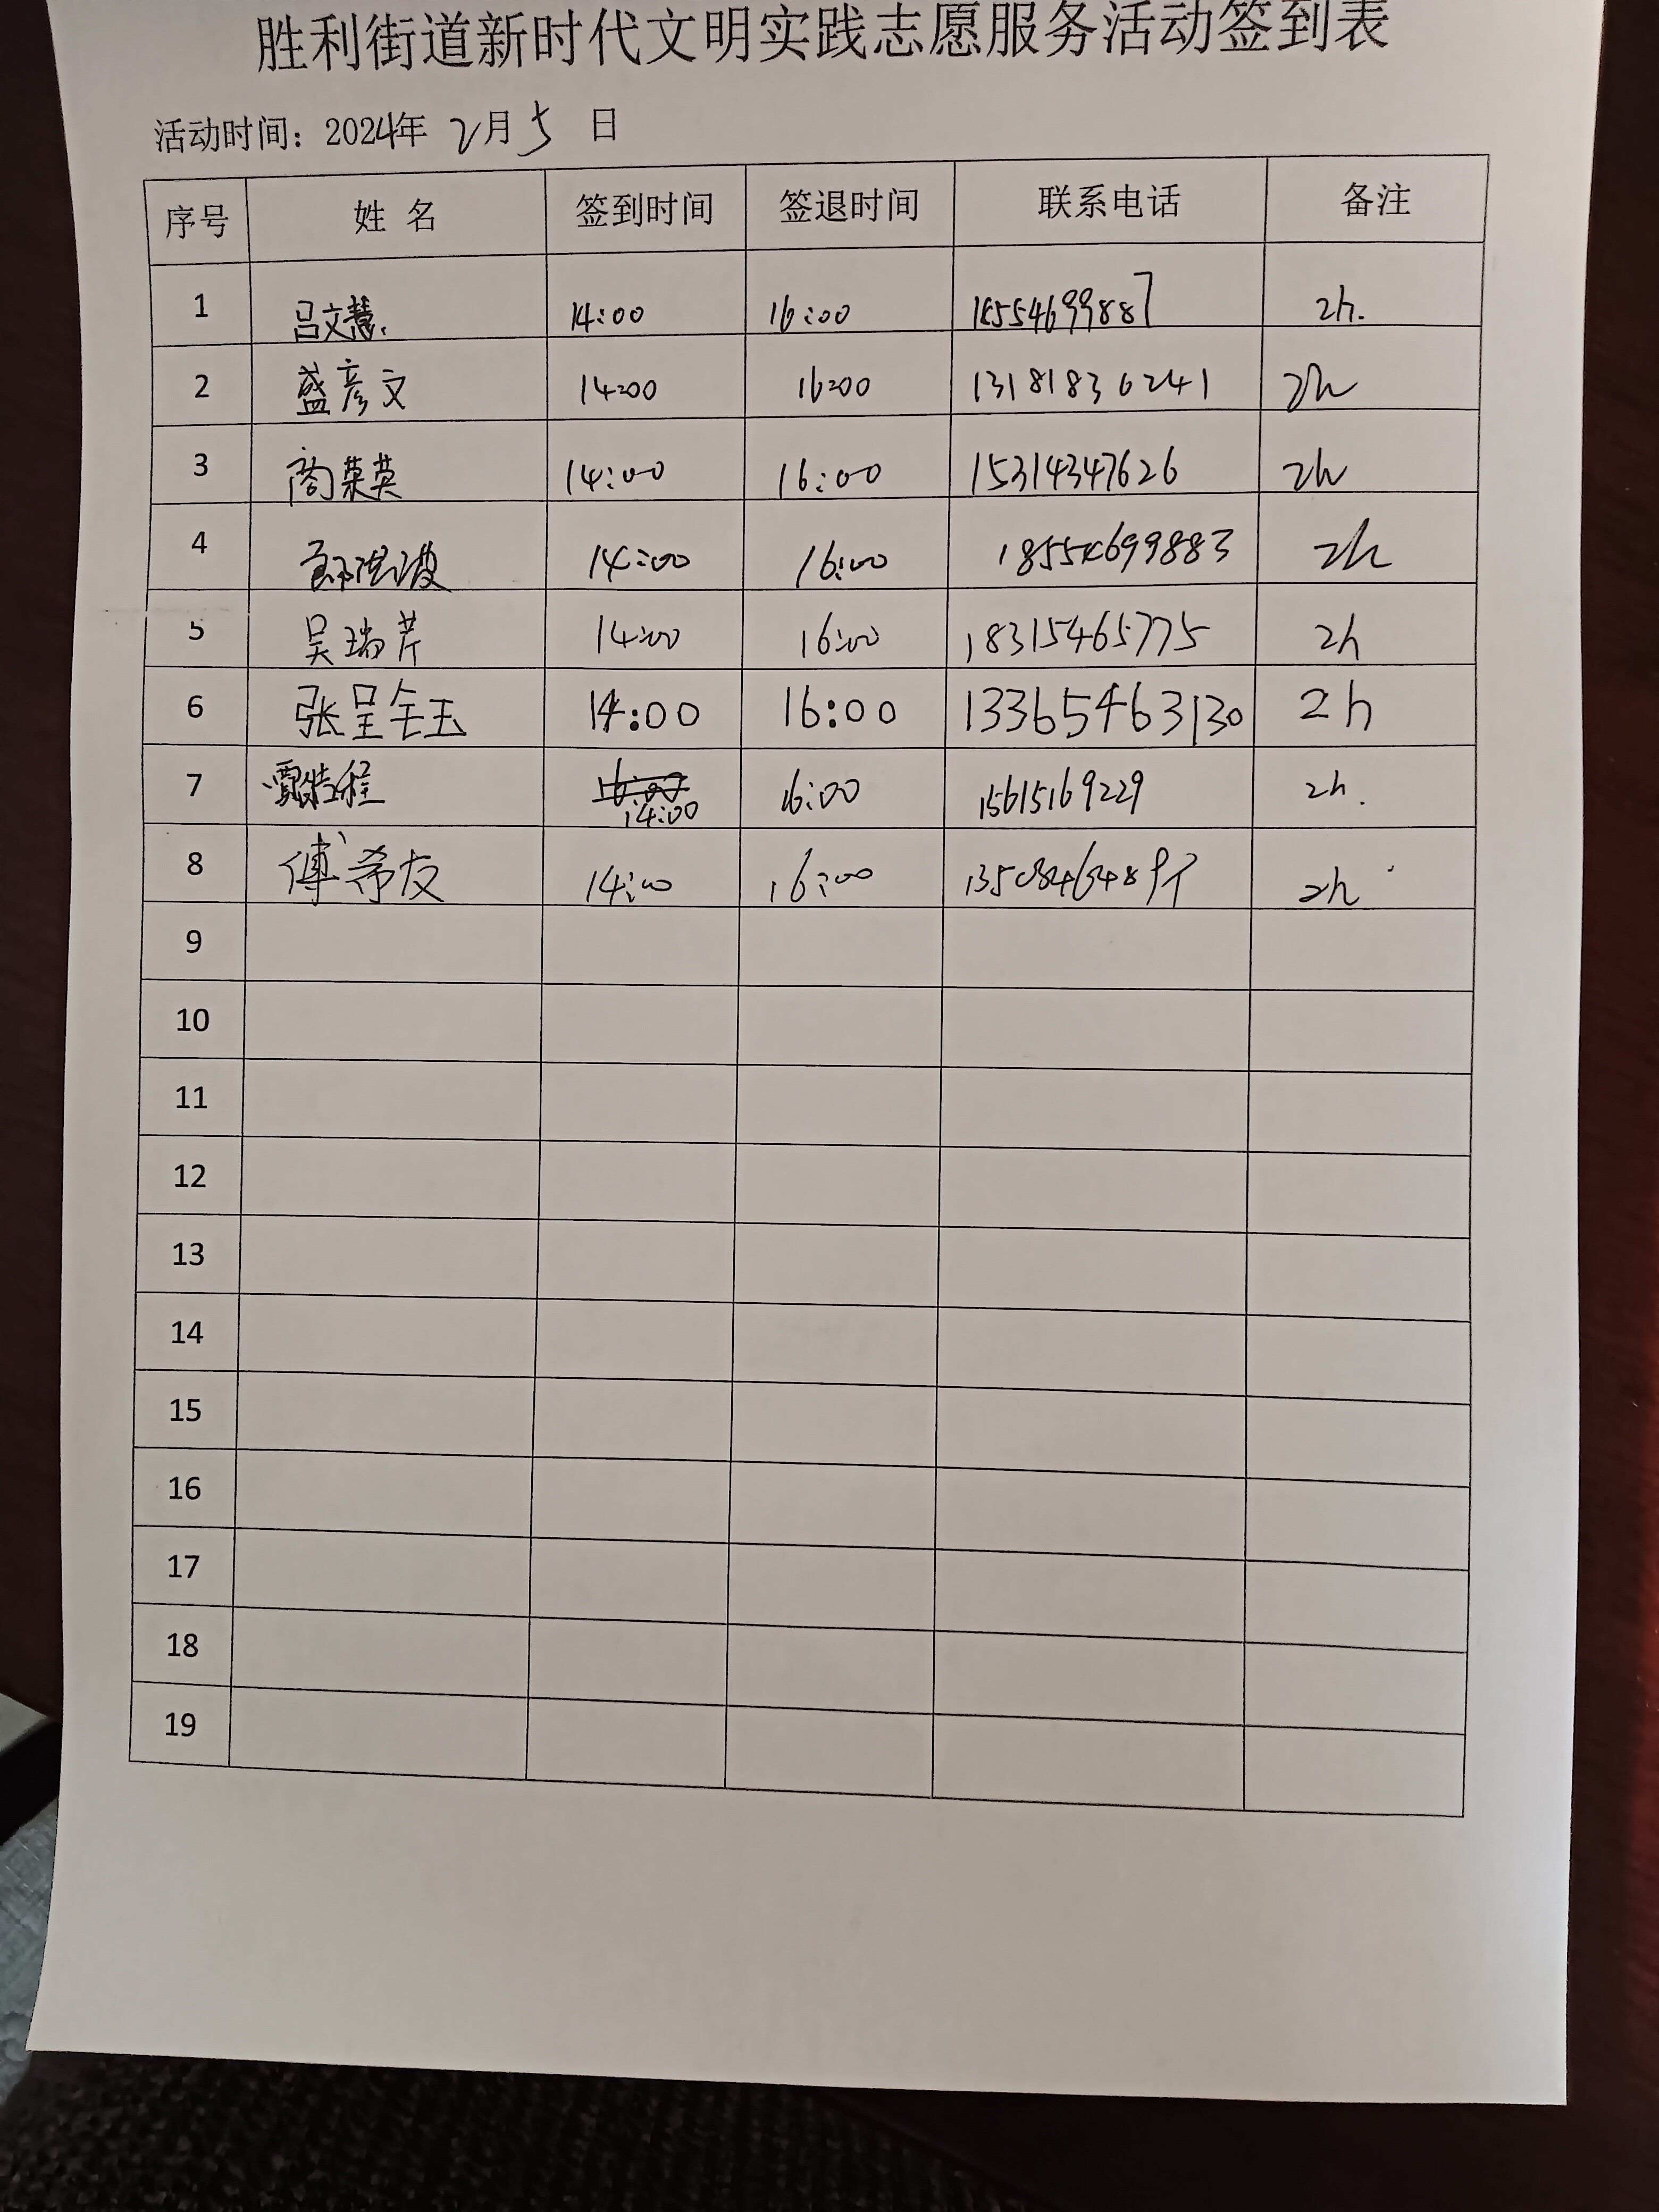 胜利街道新时代文明实践志愿服务活动签到表
活动时间：2024年 2月 5 日
序号 姓 名 签到时间 签退时间 联系电话 备注
1 吕文慧 14:00 16:00 18554699887 2h.
2 盛彦文 14:00 16:00 13181836241 2h
3 商荣英 14:00 16:00 15314347626 2h
4 14:00 16:00 18554699883 2h
5 吴瑞芹 14:00 16:00 18315465775 2h
6 张呈玉 14:00 16:00 13365463130 2h
7 14:00 16:00 15615169229 2h.
8 傅希友 14:00 16:00 2h
9
10
11
12
13
14
15
16
17
18
19